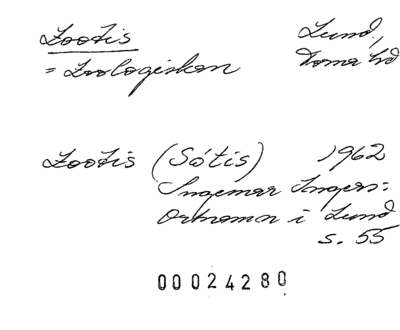 Zootis
= Zoologiskan
Lund,
Torna hd
Zootis (Sótis) 1962
Ingemar Ingers:
Ortnamn i Lund
s. 55
00024280